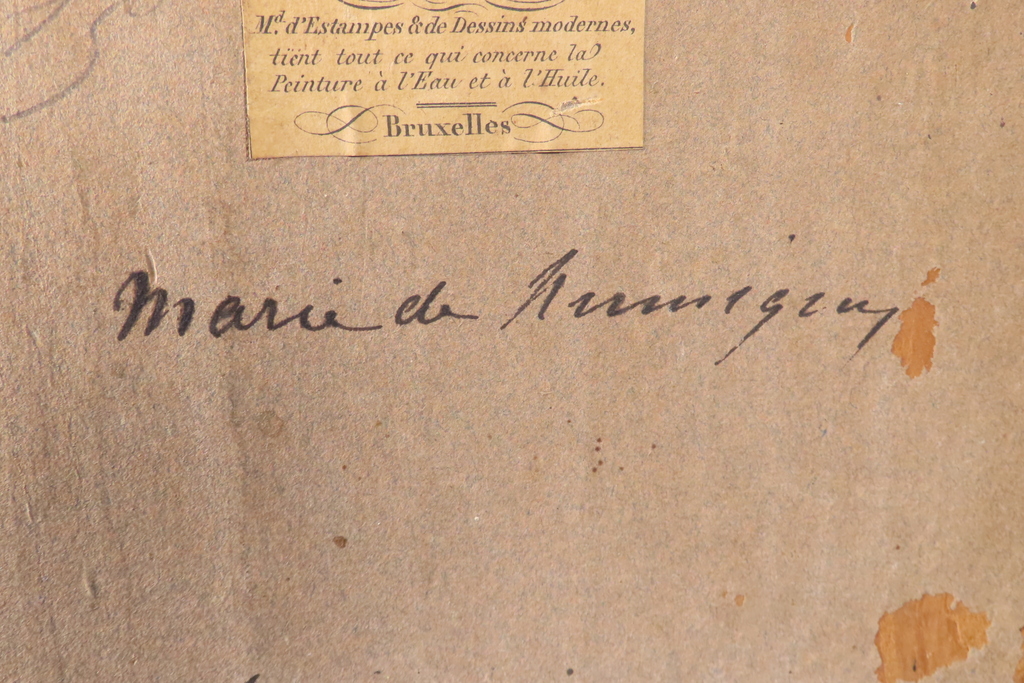 Md. d'Estampes & de Dessins modernes,
tient tout ce qui concerne la
Peinture à l'Eau et à l'Huile.
Bruxelles
Marie de Rumigny